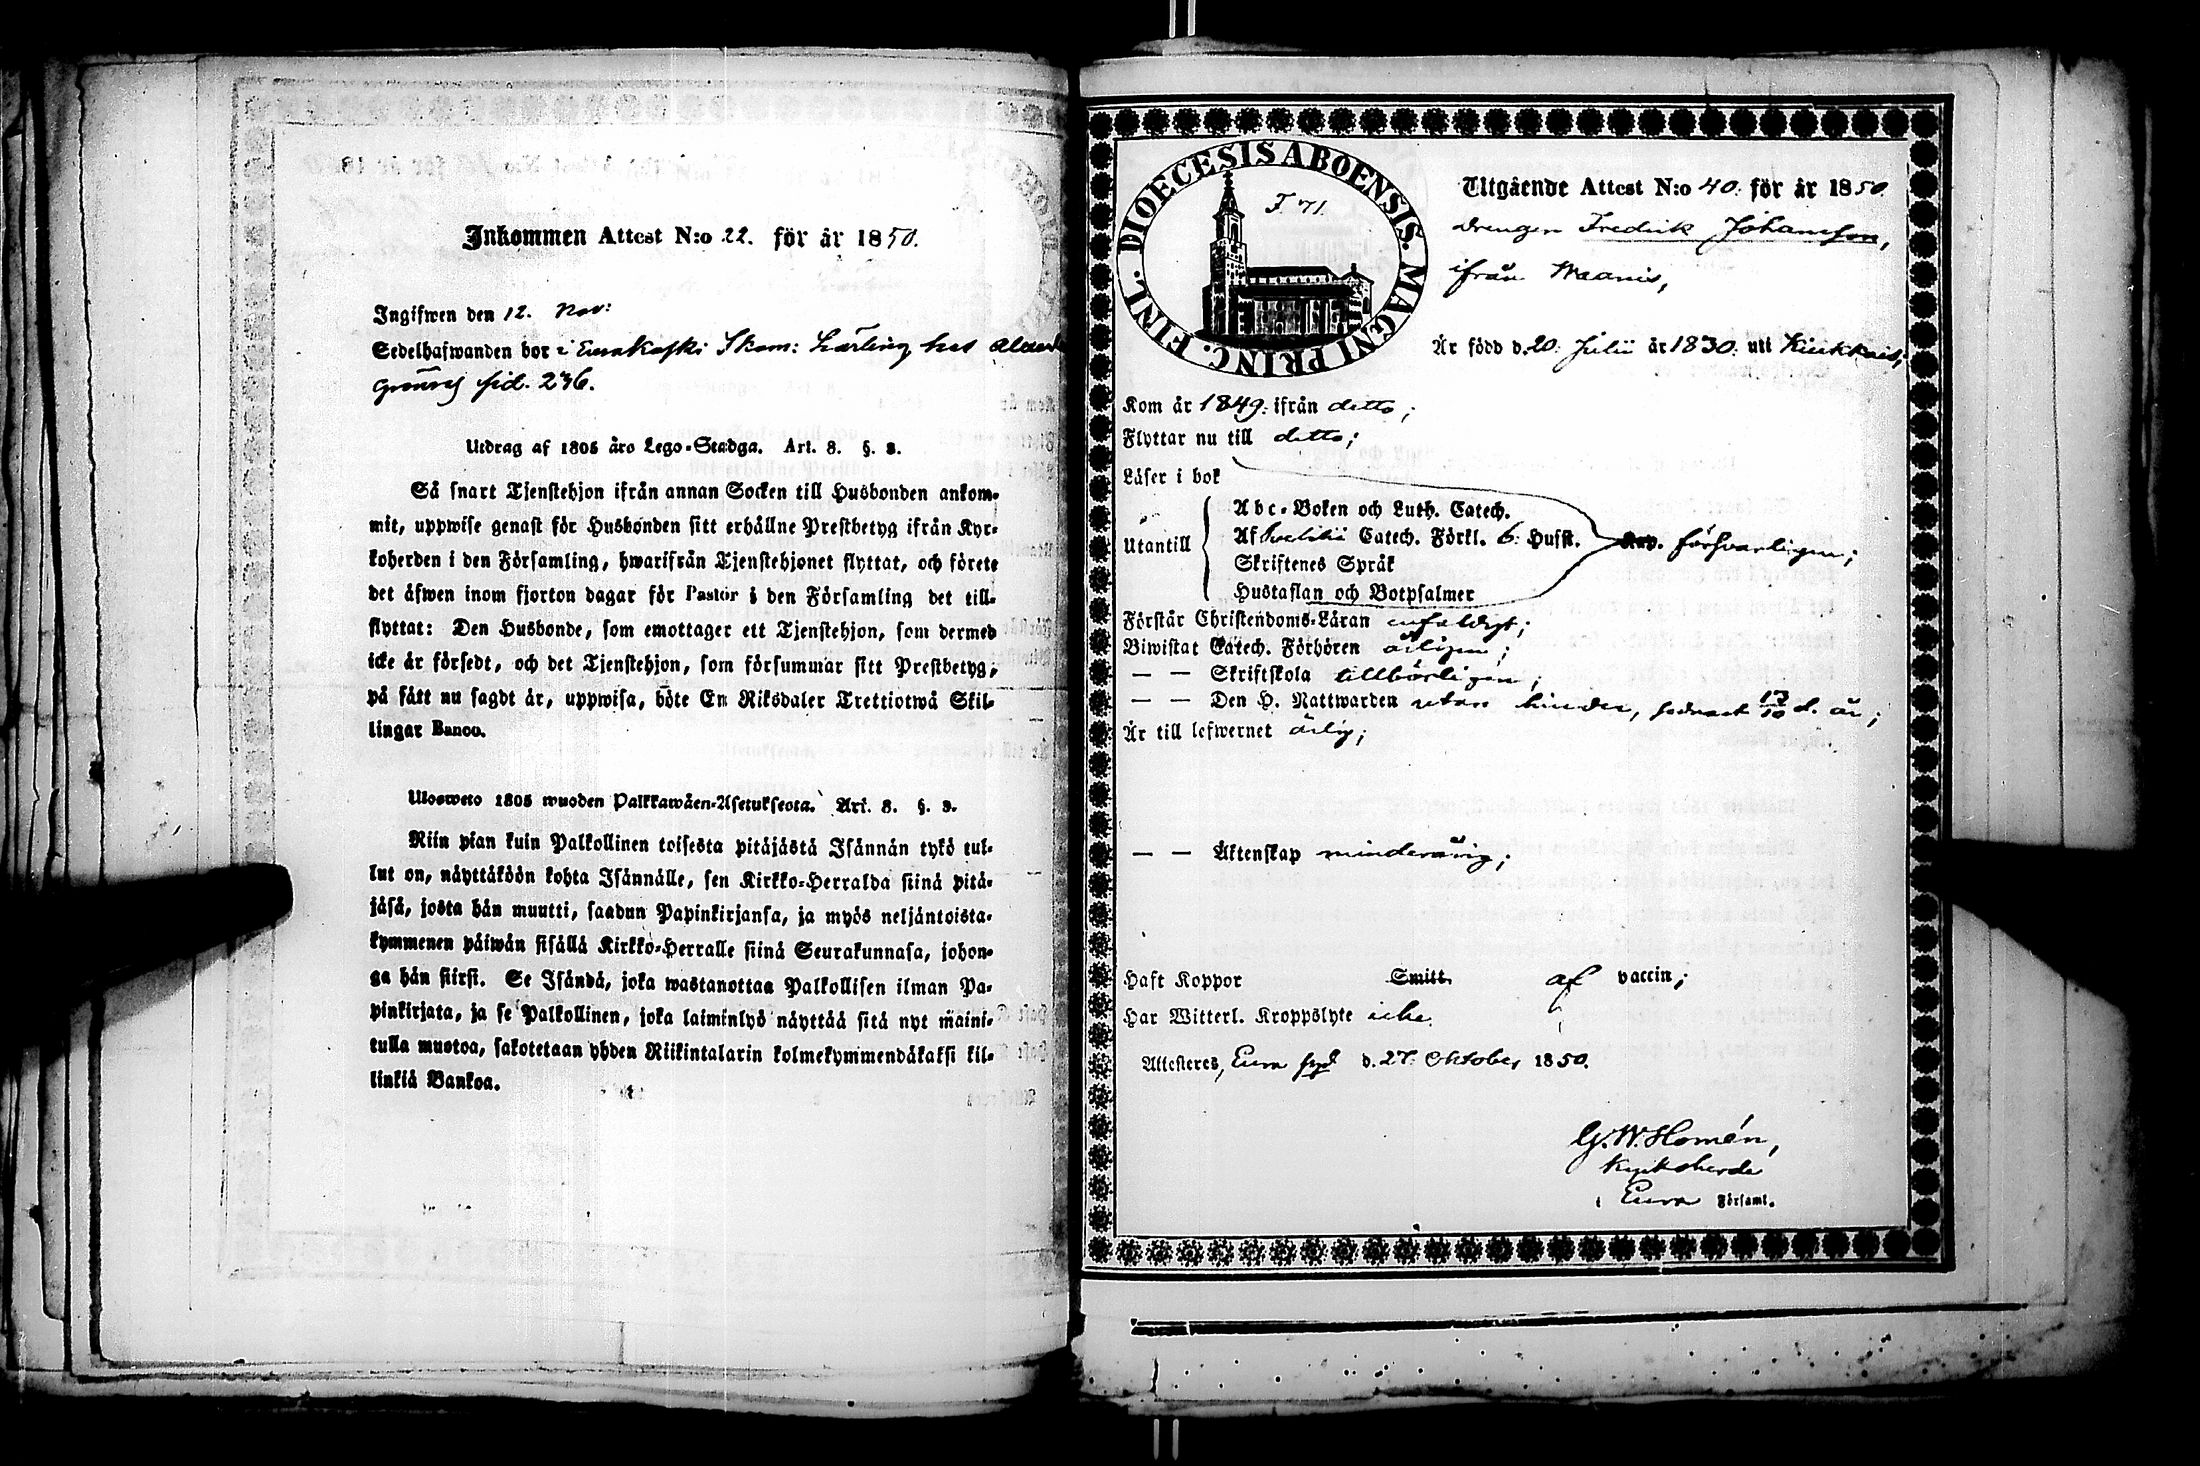 Inkommen Attest N:o 22. för år 1850.
Ingifwen den 12. Nov:
Sedelhafwanden bor i Eurakoski Skom: Lärling hos
sid. 236.
Utdrag af 1805 års Lego-Stadga. Art. 8. §. 3.
Så snart Tjenstehjon ifrån annan Socken till Husbonden ankom-
mit, uppwise genast för Husbonden sitt erhållne Prestbetyg ifrån Kyr-
koherden i den Församling, hwarifrån Tjenstehjonet flyttat, och förete
det äfwen inom fjorton dagar för Pastor i den Församling det till-
flyttat: Den Husbonde, som emottager ett Tjenstehjon, som dermed
icke är försedt, och det Tjenstehjon, som försummar sitt Prestbetyg,
på sätt nu sagdt är, uppwisa, böte En Riksdaler Trettiotwå Skil-
lingar Banco.
Ulosweto 1805 wuoden Palkkawäen-Asetuksesta. Art. 8. §. 3.
Niin pian kuin Palkollinen toisesta pitäjästä Isännän tykö tul-
lut on, näyttäköön kohta Isännälle, sen Kirkko-Herralda siinä pitä-
jäsä, josta hän muutti, saadun Papinkirjansa, ja myös neljäntoista-
kymmenen päiwän sisällä Kirkko-Herralle siinä Seurakunnasa, johon-
ga hän siirsi. Se Isändä, joka wastanottaa Palkollisen ilman Pa-
pinkirjata, ja se Palkollinen, joka laiminlyö näyttää sitä nyt maini-
tulla muotoa, sakotetaan yhden Riikintalarin kolmekymmendäkaksi kil-
linkiä Bankoa.
DIOECESIS ABOENSIS. MAGNI PRINC. FINL.
F. 71.
Utgående Attest N:o 40. för år 1850.
Drengen Fredrik Johansson,
ifrån Naanis,
Är född d. 20. Julii år 1830. uti Kiukkais;
Kom år 1849. ifrån detto;
Flyttar nu till detto;
Läser i bok
Utantill
Abc-Boken och Luth. Catech.
Af Svebilii Catech. Förkl. 6. Hufst. försvarligen;
Skriftenes Språk
Hustaflan och Botpsalmer
Förstår Christendoms-Läran enfaldigt;
Biwistat Catech. Förhören årligen;
— — Skriftskola tillbörligen;
— — Den H. Nattwarden utan hinder, sednast 13/10 d. år;
Är till lefwernet ärlig;
— — Äktenskap minderårig;
Haft Koppor Smitt. af vaccin;
Har Witterl. Kroppslyte icke.
Attesteres, Eura d. 27. Oktober 1850.
G. W. Homén,
Kyrkoherde
i Eura Församl.